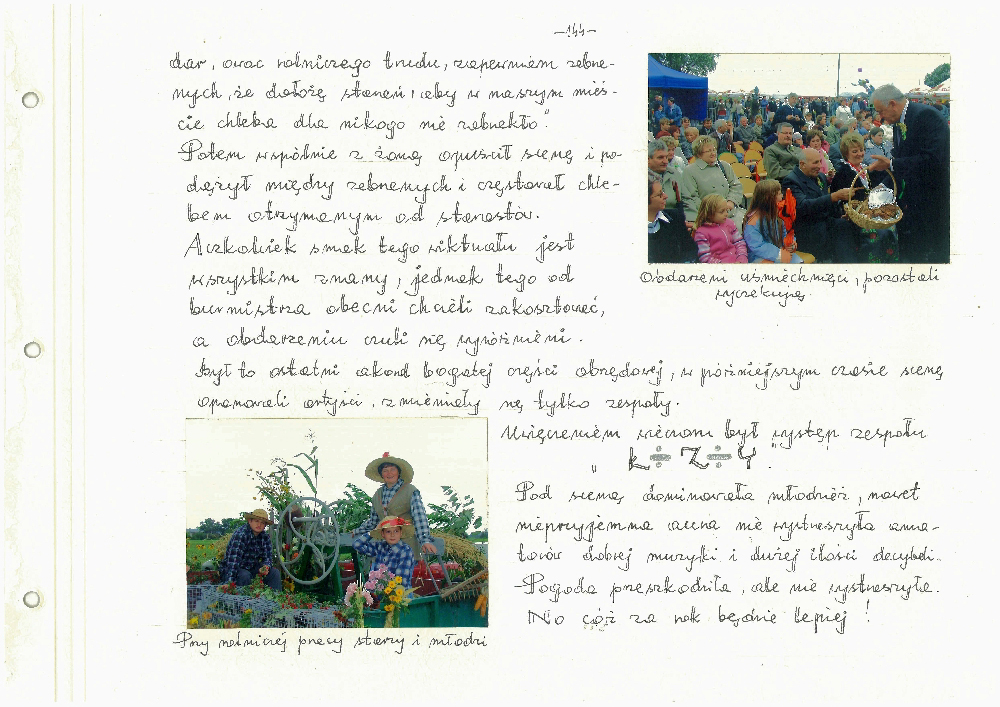 -144-
dar, oraz rolniczego trudu, zapewniam zebra-
nych, że dołożę starań, aby w naszym mieś-
cie chleba dla nikogo nie zabrakło".
Potem wspólnie z żoną opuścił scenę i po-
dążył między zebranych i częstował chle-
bem otrzymanym od starostów.
Aczkolwiek smak tego wiktuału jest
wszystkim znany, jednak tego od
burmistrza obecni chcieli zakosztować,
a obdarzeniu czuli się wyróżnieni.
Był to ostatni akord bogatej części obrzędowej, w późniejszym czasie scenę
opanowali artyści, zmieniały się tylko zespoły.
Obdarzeni uśmiechnięci, pozostali
wyczekują.
Uwięczeniem wieczoru był występ zespołu
" k÷Z÷Y".
Pod sceną dominowała młodzież, nawet
nieprzyjemna aura nie wystraszyła ama-
torów dobrej muzyki i dużej ilości decybeli.
Pogoda przeszkodziła, ale nie wystraszyła.
No cóż za rok będzie lepiej !
Przy rolniczej pracy starzy i młodzi